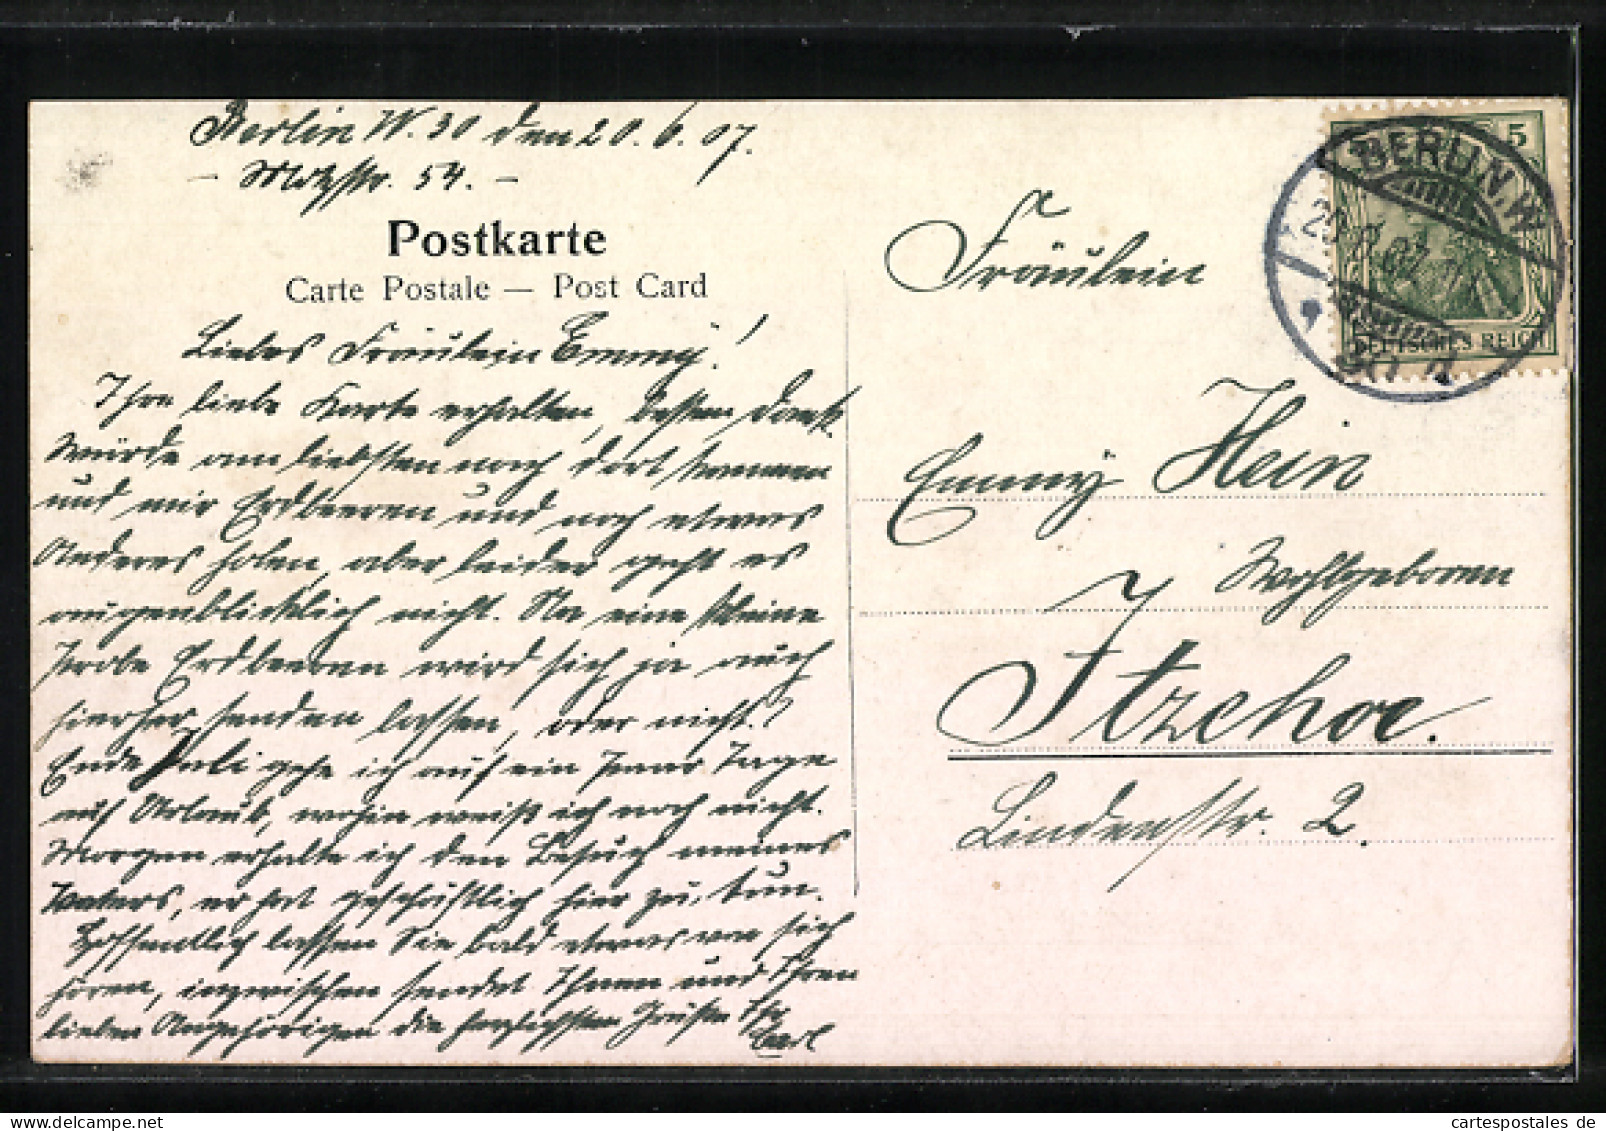 Berlin W. 30 den 20.6.07.
- Motzstr. 54. -
Postkarte
Carte Postale — Post Card
Liebes Fräulein Emmy!
Ihre liebe Karte erhalten, besten Dank.
Würde am liebsten nach dort kommen
und mir Erdbeeren und noch etwas
Anderes holen, aber leider geht es
augenblicklich nicht. Na eine kleine
Probe Erdbeeren wird sich ja auch
hierher senden lassen, oder nicht?
Ende Juli gehe ich auf ein paar Tage
auf Urlaub, wohin weiß ich noch nicht.
Morgen erhalte ich den Besuch meines
Vaters, er hat geschäftlich hier zu tun.
Hoffentlich lassen Sie bald etwas von sich
hören, inzwischen sendet Ihnen und Ihren
lieben Angehörigen die herzlichsten Grüße Ihr
Carl
Fräulein
Emmy Hein
Wohlgeboren
Itzehoe.
Lindenstr. 2.
5
BERLIN, W.
DEUTSCHES REICH
cartespostales de